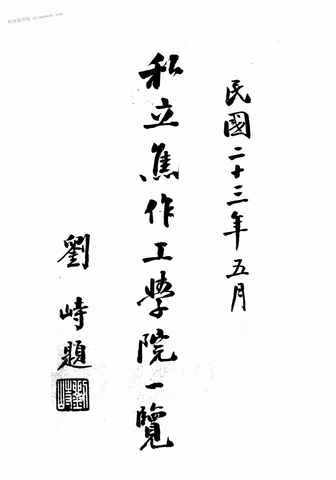 民國二十三年五月
私立焦作工學院一覽
劉峙題
劉峙